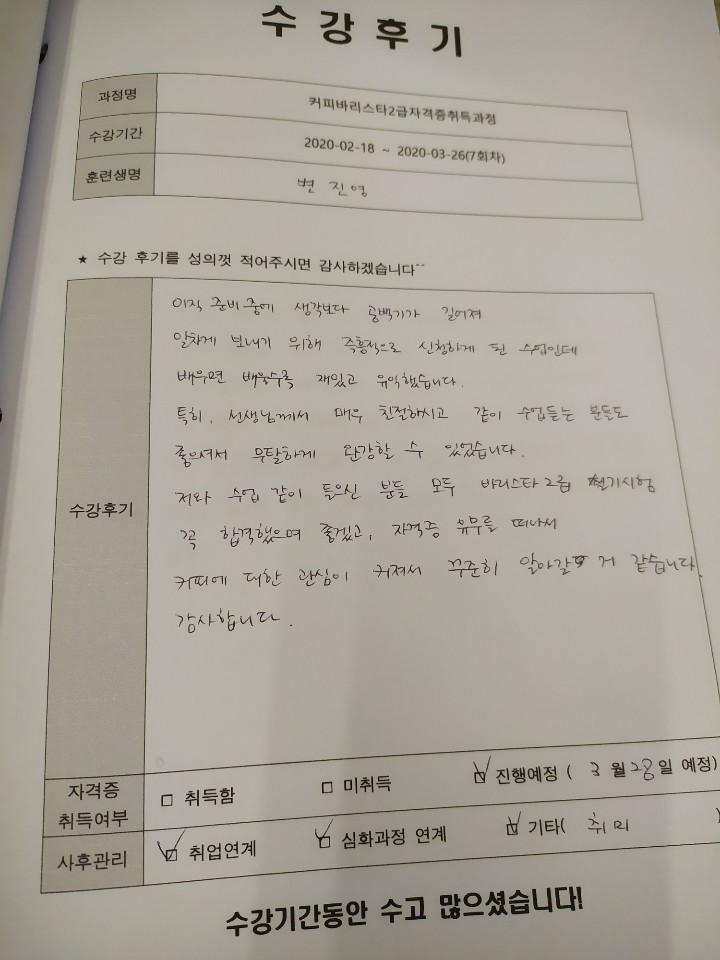 수강후기
과정명 커피바리스타2급자격증취득과정
수강기간 2020-02-18 ~ 2020-03-26(7회차)
훈련생명 변진영
★ 수강 후기를 성의껏 적어주시면 감사하겠습니다^^
수강후기
이직 준비 중에 생각보다 공백기가 길어져
알차게 보내기 위해 즉흥적으로 신청하게 된 수업인데
배우면 배울수록 재밌고 유익했습니다.
특히, 선생님께서 매우 친절하시고 같이 수업듣는 분들도
좋으셔서 무탈하게 완강할 수 있었습니다.
저와 수업 같이 들으신 분들 모두 바리스타 2급 필기시험
꼭 합격했으며 좋겠고, 자격증 유무를 떠나서
커피에 대한 관심이 커져서 꾸준히 알아갈 거 같습니다.
감사합니다.
자격증 취득여부 □ 취득함 □ 미취득 ☑ 진행예정 ( 3 월 28 일 예정)
사후관리 ☑ 취업연계 ☑ 심화과정 연계 ☑ 기타( 취미 )
수강기간동안 수고 많으셨습니다!